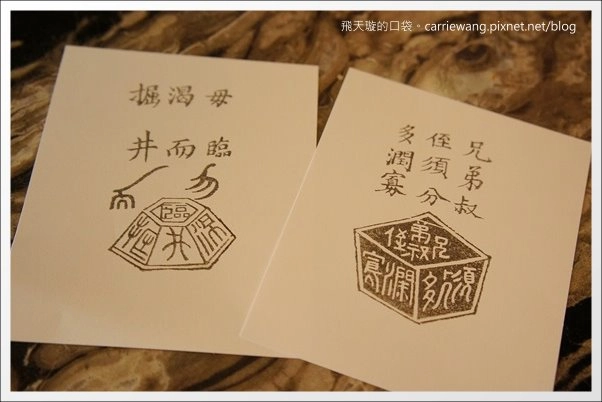 飛天璇的口袋。carriewang.pixnet.net/blog
毋臨
渴而
掘井
兄弟叔
侄須分
多潤寡